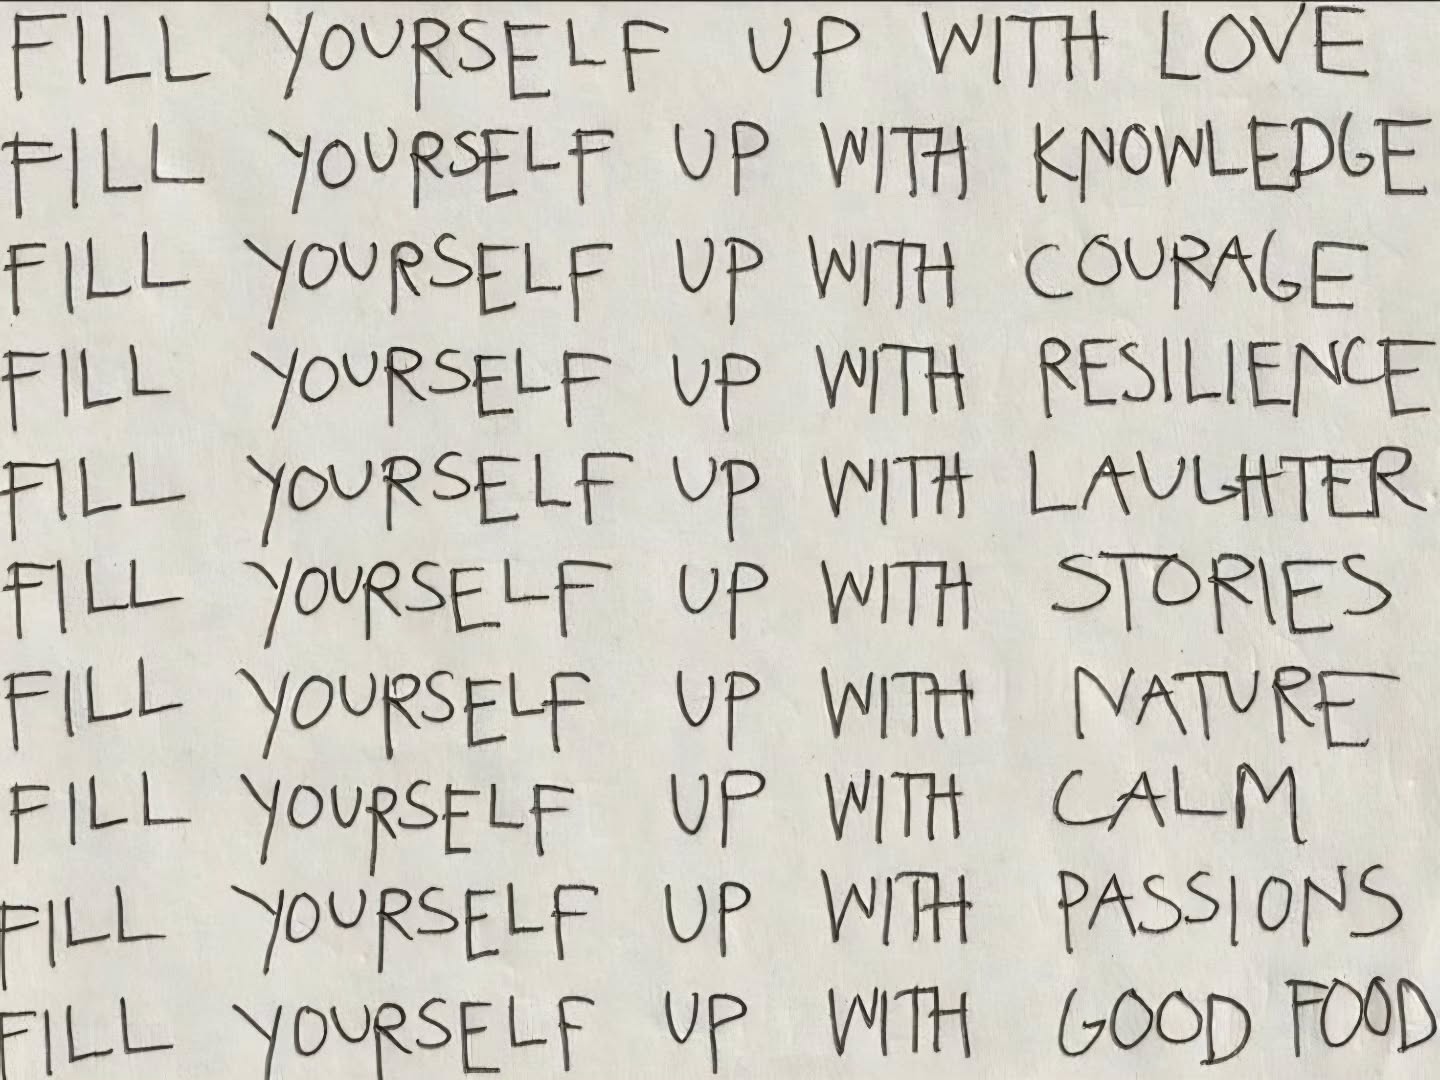 FILL YOURSELF UP WITH LOVE
FILL YOURSELF UP WITH KNOWLEDGE
FILL YOURSELF UP WITH COURAGE
FILL YOURSELF UP WITH RESILIENCE
FILL YOURSELF UP WITH LAUGHTER
FILL YOURSELF UP WITH STORIES
FILL YOURSELF UP WITH NATURE
FILL YOURSELF UP WITH CALM
FILL YOURSELF UP WITH PASSIONS
FILL YOURSELF UP WITH GOOD FOOD